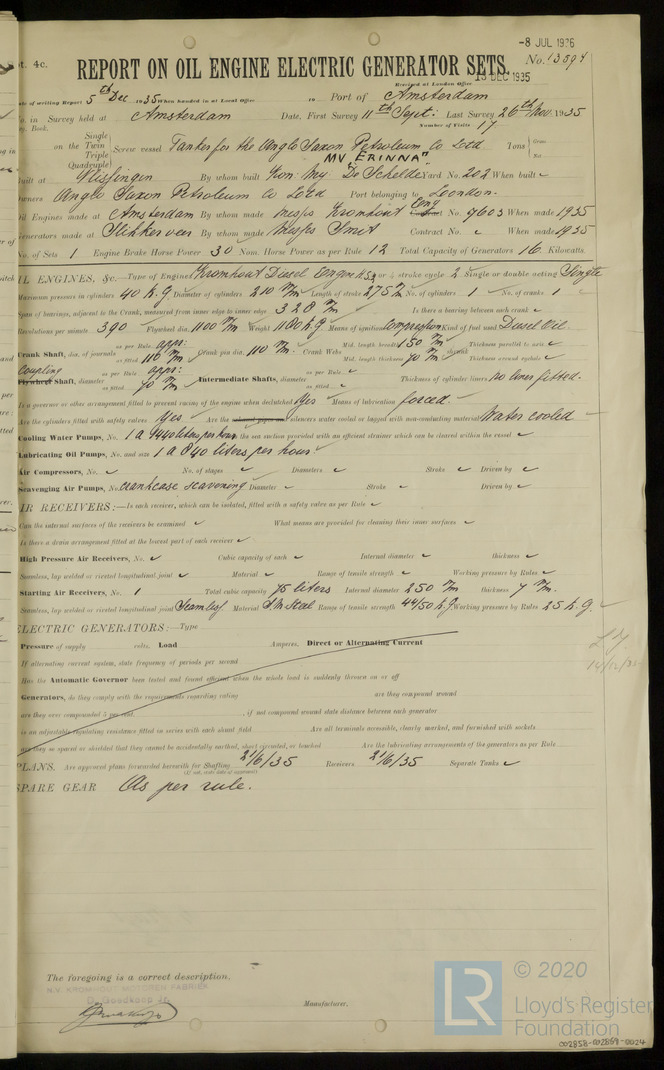 -8 JUL 1936
pt. 4c.
REPORT ON OIL ENGINE ELECTRIC GENERATOR SETS.
No. 13894
Received at London Office 13 DEC 1935
Date of writing Report 5th Dec. 1935 When handed in at Local Office 19 Port of Amsterdam
No. in Survey held at Amsterdam Date, First Survey 11th Sept: Last Survey 26th Nov. 1935
Reg. Book. Number of Visits 17
Single
on the Twin
Triple
Quadruple
Screw vessel Tanker for the Anglo Saxon Petroleum Co Ltd Tons Gross Net
MV "ERINNA"
Built at Vlissingen By whom built Kon: My De Schelde Yard No. 202 When built ✓
Owners Anglo Saxon Petroleum Co Ltd Port belonging to London.
Oil Engines made at Amsterdam By whom made Messrs Kromhout Eng No. 9603 When made 1935
Generators made at Slikkerveer By whom made Messrs Smit Contract No. ✓ When made 1935
No. of Sets 1 Engine Brake Horse Power 30 Nom. Horse Power as per Rule 12 Total Capacity of Generators 16 Kilowatts.
OIL ENGINES, &c.—Type of Engine Kromhout Diesel Engine 2 or 4 stroke cycle 2 Single or double acting Single
Maximum pressure in cylinders 40 k.g. Diameter of cylinders 210 m/m Length of stroke 275 m/m No. of cylinders 1 No. of cranks 1
Span of bearings, adjacent to the Crank, measured from inner edge to inner edge 328 m/m Is there a bearing between each crank ✓
Revolutions per minute 390 Flywheel dia. 1100 m/m Weight 1180 k.g Means of ignition Compression Kind of fuel used Diesel Oil
Crank Shaft, dia. of journals as per Rule appr: as fitted 110 m/m Crank pin dia. 110 m/m Crank Webs Mid. length breadth 150 m/m Mid. length thickness 70 m/m Thickness parallel to axis ✓ Thickness around eyehole ✓
Coupling
Flywheel Shaft, diameter as per Rule appr: as fitted 90 m/m Intermediate Shafts, diameter as per Rule ✓ as fitted ✓ Thickness of cylinder liners No liner fitted.
Is a governor or other arrangement fitted to prevent racing of the engine when declutched Yes Means of lubrication forced.
Are the cylinders fitted with safety valves Yes Are the exhaust pipes and silencers water cooled or lagged with non-conducting material Water cooled
Cooling Water Pumps, No. 1 a 1440 liters per hour the sea suction provided with an efficient strainer which can be cleared within the vessel ✓
Lubricating Oil Pumps, No. and size 1 a 840 liters per hour ✓
Air Compressors, No. ✓ No. of stages ✓ Diameters ✓ Stroke ✓ Driven by ✓
Scavenging Air Pumps, No. crankcase scavening Diameter ✓ Stroke ✓ Driven by ✓
AIR RECEIVERS:—Is each receiver, which can be isolated, fitted with a safety valve as per Rule ✓
Can the internal surfaces of the receivers be examined ✓ What means are provided for cleaning their inner surfaces ✓
Is there a drain arrangement fitted at the lowest part of each receiver ✓
High Pressure Air Receivers, No. ✓ Cubic capacity of each ✓ Internal diameter ✓ thickness ✓
Seamless, lap welded or riveted longitudinal joint ✓ Material ✓ Range of tensile strength ✓ Working pressure by Rules ✓
Starting Air Receivers, No. 1 Total cubic capacity 75 liters Internal diameter 250 m/m thickness 7 m/m.
Seamless, lap welded or riveted longitudinal joint Seamless Material S.M Steel Range of tensile strength 44/50 k.g Working pressure by Rules 25 k.g.
ELECTRIC GENERATORS:—Type
Pressure of supply volts. Load Amperes. Direct or Alternating Current
If alternating current system, state frequency of periods per second
Has the Automatic Governor been tested and found efficient when the whole load is suddenly thrown on or off
Generators, do they comply with the requirements regarding rating are they compound wound
are they over compounded 5 per cent. , if not compound wound state distance between each generator
is an adjustable regulating resistance fitted in series with each shunt field Are all terminals accessible, clearly marked, and furnished with sockets
are they so spaced or shielded that they cannot be accidentally earthed, short circuited, or touched Are the lubricating arrangements of the generators as per Rule
PLANS. Are approved plans forwarded herewith for Shafting 21/6/35 Receivers 21/6/35 Separate Tanks ✓
(If not, state date of approval)
SPARE GEAR As per rule.
The foregoing is a correct description.
N.V. KROMHOUT MOTOREN FABRIEK
D. Goedkoop Jr.
Manufacturer.
LR
© 2020
Lloyd's Register
Foundation
002858-002868-0024